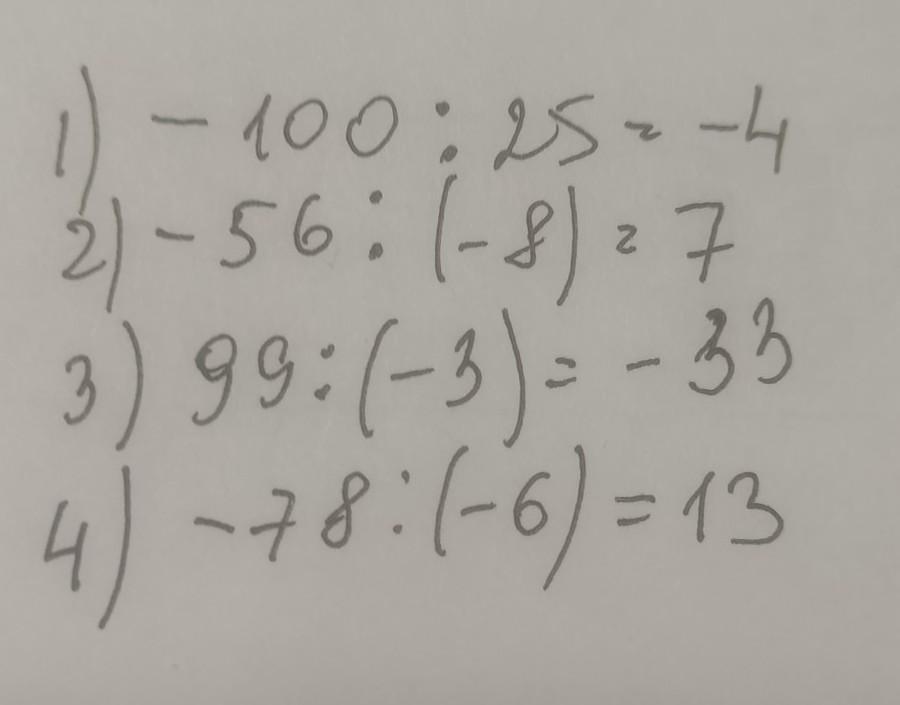 1) - 100 : 25 = -4
2) - 56 : (-8) = 7
3) 99 : (-3) = - 33
4) - 78 : (-6) = 13